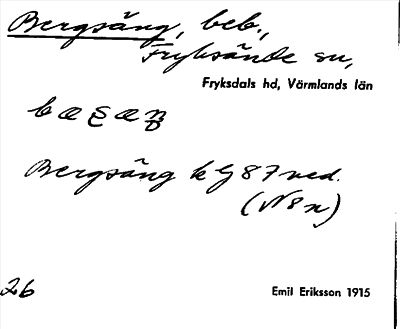 Bergsäng, beb.,
Fryksände sn,
Fryksdals hd, Värmlands län
Bergsäng k G 87 ned.
(N8n)
26
Emil Eriksson 1915